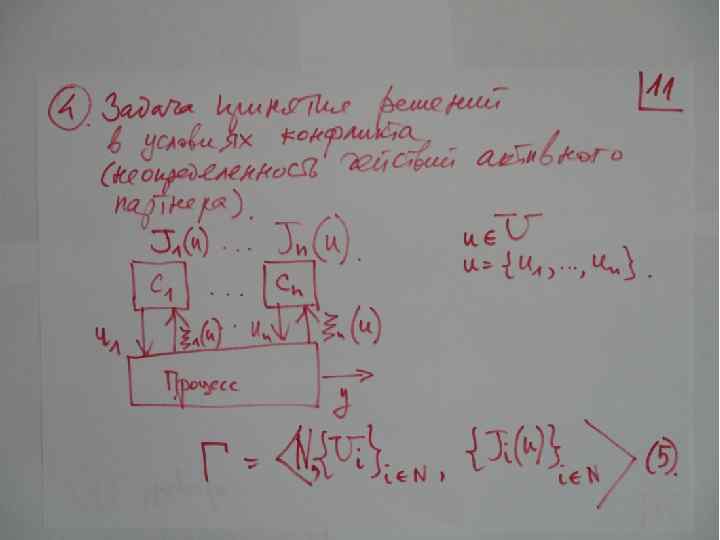 4. Задача принятия решений
11
в условиях конфликта
(неопределенность действий активного
партнера).
J₁(u) ... Jₙ(u).
u ∈ U
u = {u₁, ..., uₙ}.
C₁ ... Cₙ
u₁ ξ₁(u) . uₙ ξₙ(u)
Процесс
y
Γ = ⟨N, {Uᵢ}ᵢ∈N, {Jᵢ(u)}ᵢ∈N⟩ (5).